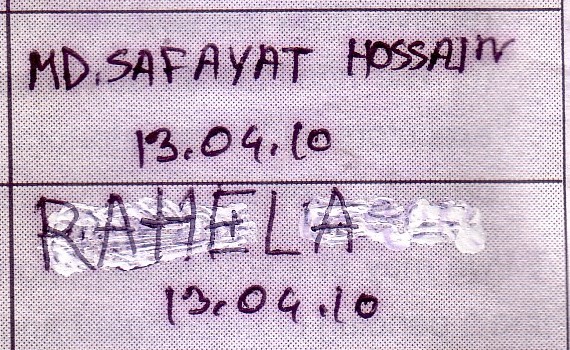 MD. SAFAYAT HOSSAIN
13.04.10
RAHELA
13.04.10